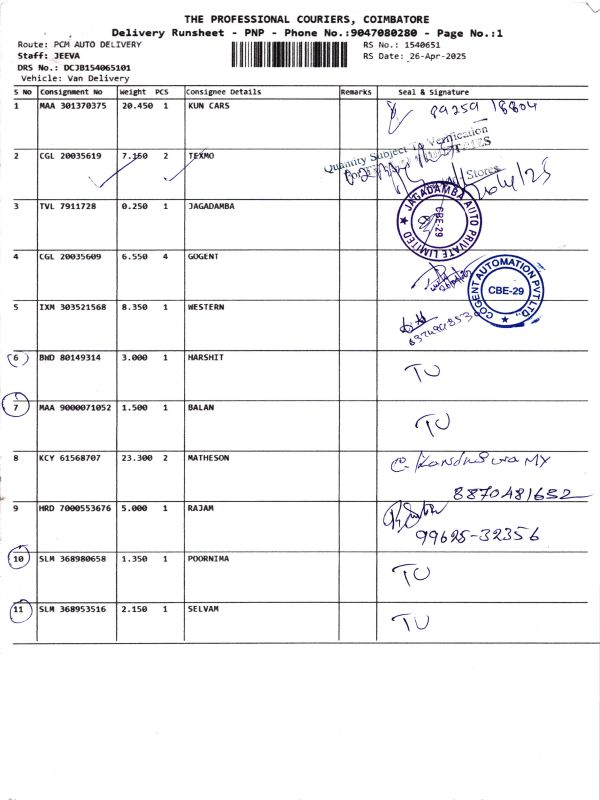 THE PROFESSIONAL COURIERS, COIMBATORE
Delivery Runsheet - PNP - Phone No.:9047080280 - Page No.:1
Route: PCM AUTO DELIVERY
RS No.: 1540651
Staff: JEEVA
RS Date: 26-Apr-2025
DRS No.: DCJB154065101
Vehicle: Van Delivery
S No Consignment No Weight PCS Consignee Details Remarks Seal & Signature
1 MAA 301370375 20.450 1 KUN CARS
2 CGL 20035619 7.150 2 TEXMO
Quantity Subject To Verification
Stores
3 TVL 7911728 0.250 1 JAGADAMBA
JAGADAMBA AUTO PRIVATE LIMITED
CBE-29
4 CGL 20035609 6.550 4 GOGENT
COGENT AUTOMATION PVT LTD.,
CBE-29
5 IXM 303521568 8.350 1 WESTERN
6 BWD 80149314 3.000 1 HARSHIT
TU
7 MAA 9000071052 1.500 1 BALAN
TU
8 KCY 61568707 23.300 2 MATHESON
8870481652
9 HRD 7000553676 5.000 1 RAJAM
99625-32356
10 SLM 368980658 1.350 1 POORNIMA
TU
11 SLM 368953516 2.150 1 SELVAM
TU